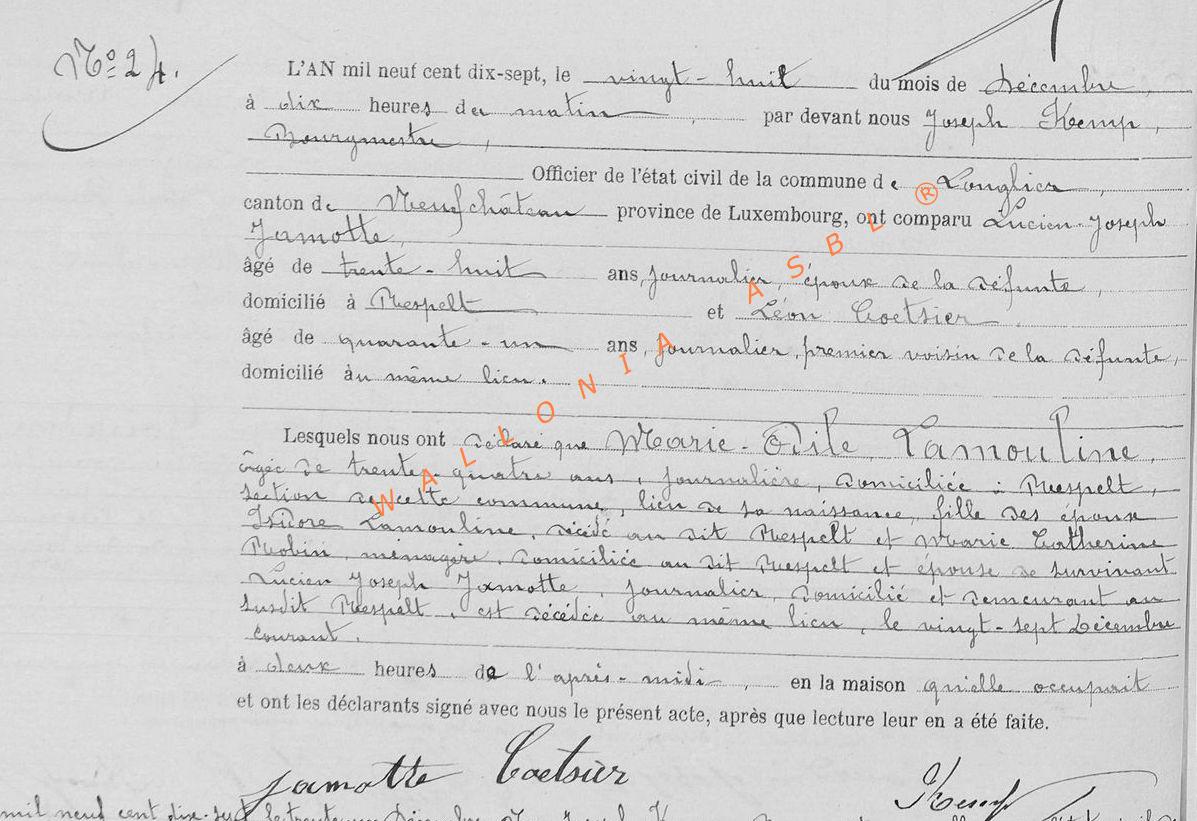 N° 24.
L'AN mil neuf cent dix-sept, le vingt-huit du mois de Décembre,
à dix heures du matin, par devant nous Joseph Kemp,
Bourgmestre,
Officier de l'état civil de la commune de Longlier,
canton de Neufchâteau province de Luxembourg, ont comparu Lucien Joseph
Jamotte,
âgé de trente-huit ans, journalier, époux de la défunte,
domicilié à Respelt et Léon Coetsier
âgé de quarante-un ans, journalier, premier voisin de la défunte,
domicilié au même lieu.
Lesquels nous ont déclaré que Marie-Odile Lamouline,
âgée de trente-quatre ans, journalière, domiciliée à Respelt,
section de cette commune, lieu de sa naissance, fille des époux
Isidore Lamouline, décédé au dit Respelt et Marie Catherine
Robin, ménagère, domiciliée au dit Respelt et épouse de survivant
Lucien Joseph Jamotte, journalier, domicilié et demeurant au
susdit Respelt, est décédée au même lieu, le vingt-sept Décembre
courant.
à deux heures de l'après-midi, en la maison qu'elle occupait
et ont les déclarants signé avec nous le présent acte, après que lecture leur en a été faite.
Jamotte Coetsier Kemp
mil neuf cent dix-sept le trente
WALLONIA ASBL ®